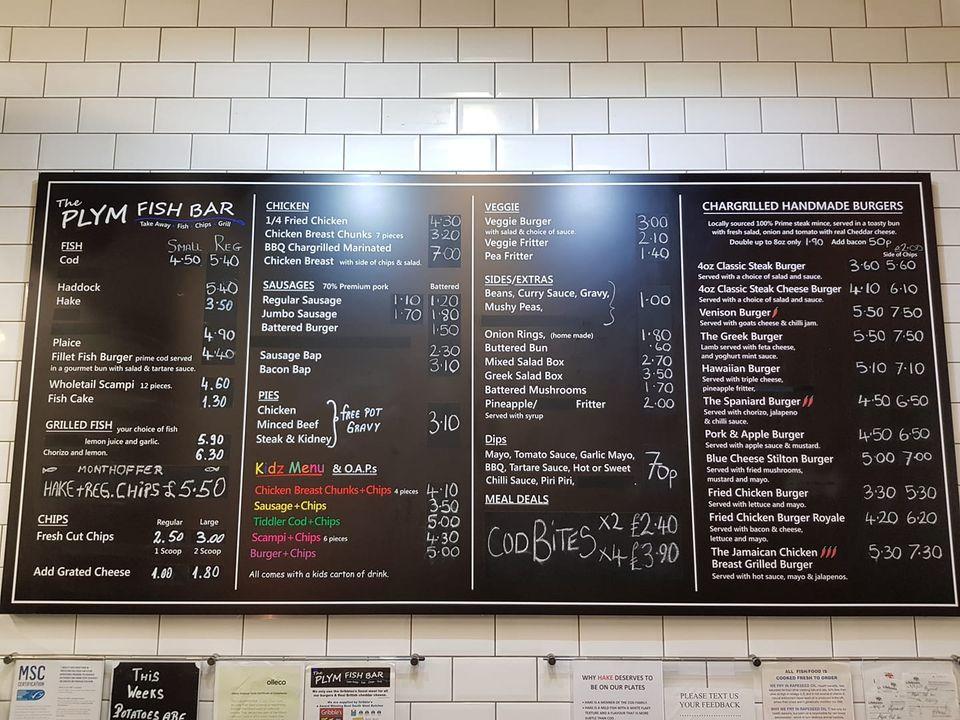 The PLYM FISH BAR
Take Away · Fish · Chips · Grill
FISH Small Reg
Cod 4.50 5.40
Haddock 5.40
Hake 3.50
Plaice 4.90
Fillet Fish Burger prime cod served 4.40
in a gourmet bun with salad & tartare sauce.
Wholetail Scampi 12 pieces. 4.60
Fish Cake 1.30
GRILLED FISH your choice of fish
lemon juice and garlic. 5.90
Chorizo and lemon. 6.30
MONTH OFFER
HAKE + REG. CHIPS £5.50
CHIPS Regular Large
Fresh Cut Chips 2.50 3.00
1 Scoop 2 Scoop
Add Grated Cheese 1.00 1.80
CHICKEN
1/4 Fried Chicken 4.30
Chicken Breast Chunks 7 pieces 3.20
BBQ Chargrilled Marinated 7.00
Chicken Breast with side of chips & salad.
SAUSAGES 70% Premium pork Battered
Regular Sausage 1.10 1.20
Jumbo Sausage 1.70 1.80
Battered Burger 1.50
Sausage Bap 2.30
Bacon Bap 3.10
PIES
Chicken
Minced Beef
Steak & Kidney
FREE POT
GRAVY
3.10
Kidz Menu & O.A.P.s
Chicken Breast Chunks+Chips 4 pieces 4.10
Sausage+Chips 3.50
Tiddler Cod+Chips 5.00
Scampi+Chips 6 pieces 4.30
Burger+Chips 5.00
All comes with a kids carton of drink.
VEGGIE
Veggie Burger 3.00
with salad & choice of sauce.
Veggie Fritter 2.10
Pea Fritter 1.40
SIDES/EXTRAS
Beans, Curry Sauce, Gravy,
Mushy Peas,
1.00
Onion Rings, (home made) 1.80
Buttered Bun .60
Mixed Salad Box 2.70
Greek Salad Box 3.50
Battered Mushrooms 1.70
Pineapple/ Fritter 2.00
Served with syrup
Dips
Mayo, Tomato Sauce, Garlic Mayo,
BBQ, Tartare Sauce, Hot or Sweet
Chilli Sauce, Piri Piri,
70p
MEAL DEALS
COD BITES x2 £2.40
x4 £3.90
CHARGRILLED HANDMADE BURGERS
Locally sourced 100% Prime steak mince, served in a toasty bun
with fresh salad, onion and tomato with real Cheddar cheese.
Double up to 8oz only 1.90 Add bacon 50p
£2.00
Side of Chips
4oz Classic Steak Burger 3.60 5.60
Served with a choice of salad and sauce.
4oz Classic Steak Cheese Burger 4.10 6.10
Served with a choice of salad and sauce.
Venison Burger 5.50 7.50
Served with goats cheese & chilli jam.
The Greek Burger 5.50 7.50
Lamb served with feta cheese,
and yoghurt mint sauce.
Hawaiian Burger 5.10 7.10
Served with triple cheese,
pineapple fritter,
The Spaniard Burger 4.50 6.50
Served with chorizo, jalapeno
& chilli sauce.
Pork & Apple Burger 4.50 6.50
Served with apple sauce & mustard.
Blue Cheese Stilton Burger 5.00 7.00
Served with fried mushrooms,
mustard and mayo.
Fried Chicken Burger 3.30 5.30
Served with lettuce and mayo.
Fried Chicken Burger Royale 4.20 6.20
Served with bacon & cheese,
lettuce and mayo.
The Jamaican Chicken 5.30 7.30
Breast Grilled Burger
Served with hot sauce, mayo & jalapenos.
MSC
CERTIFICATION
THIS
WEEKS
POTATOES ARE
olleco
The PLYM FISH BAR
WHY HAKE DESERVES TO
BE ON OUR PLATES
PLEASE TEXT US
YOUR FEEDBACK
ALL FISH/FOOD IS
COOKED FRESH TO ORDER
WE FRY IN RAPESEED OIL